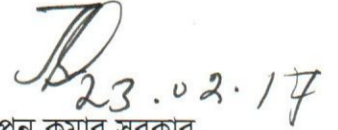 23.02.17
পন কুমার সরকার